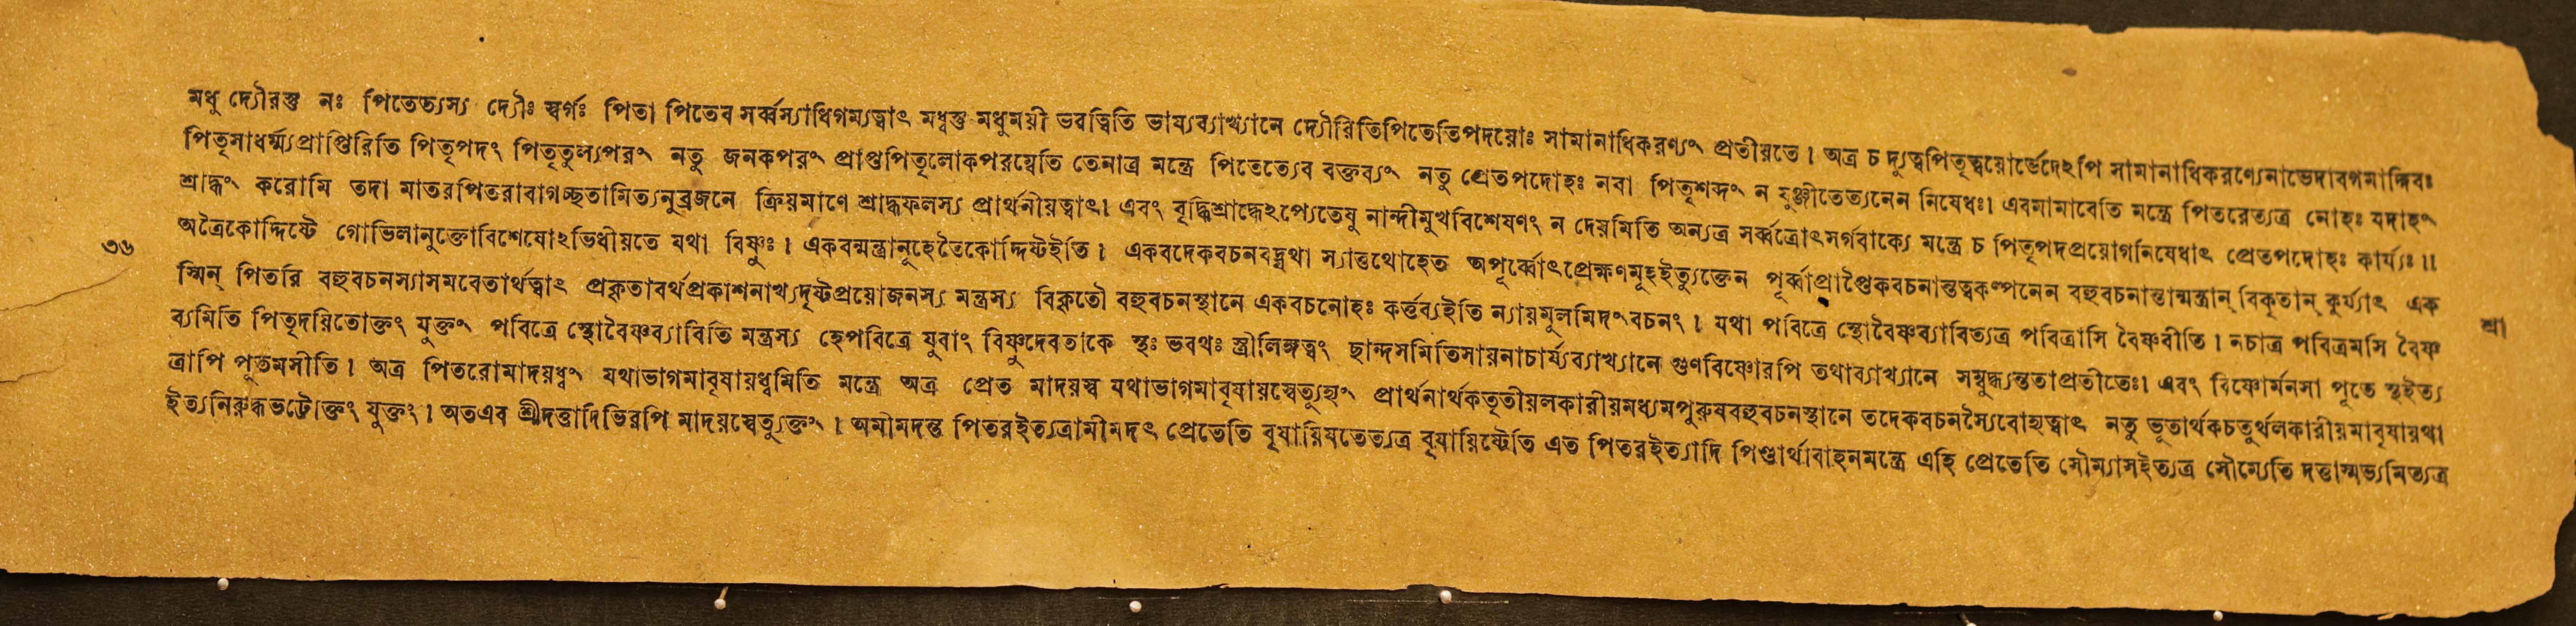 মধু দ্যৌরস্তু নঃ পিতেত্যস্য দ্যৌঃ স্বর্গঃ পিতা পিতেব সর্ব্বস্যাধিগম্যত্বাৎ মধ্বস্তু মধুময়ী ভবত্বিতি ভাষ্যব্যাখ্যানে দ্যৌরিতিপিতেতিপদয়োঃ সামানাধিকরণ্যং প্রতীয়তে। অত্র চ দ্যুত্বপিতৃত্বয়োর্ভেদেঽপি সামানাধিকরণ্যেনাভেদাবগমাদ্দিবঃ
পিতৃসাধর্ম্ম্যপ্রাপ্তিরিতি পিতৃপদং পিতৃতুল্যপরং নতু জনকপরং প্রাপ্তপিতৃলোকপরম্বেতি তেনাত্র মন্ত্রে পিতেত্যেব বক্তব্যং নতু প্রেতপদোহঃ নবা পিতৃশব্দং ন যুঞ্জীতেত্যনেন নিষেধঃ। এবমামাবেতি মন্ত্রে পিতরেত্যত্র নোহঃ যদাহং
শ্রাদ্ধং করোমি তদা মাতরপিতরাবাগচ্ছতামিত্যনুব্রজনে ক্রিয়মাণে শ্রাদ্ধফলস্য প্রার্থনীয়ত্বাৎ। এবং বৃদ্ধিশ্রাদ্ধেঽপ্যেতেষু নান্দীমুখবিশেষণং ন দেয়মিতি অন্যত্র সর্ব্বত্রোৎসর্গবাক্যে মন্ত্রে চ পিতৃপদপ্রয়োগনিষেধাৎ প্রেতপদোহঃ কার্য্যঃ॥
অত্রৈকোদ্দিষ্টে গোভিলানুক্তোবিশেষোঽভিধীয়তে যথা বিষ্ণুঃ। একবন্মন্ত্রানূহেতৈকোদ্দিষ্টইতি। একবদেকবচনবদ্যথা স্যাত্তথোহেত অপূর্ব্বোৎপ্রেক্ষণমূহইত্যুক্তেন পূর্ব্বাপ্রাপ্তৈকবচনান্ততত্বকল্পনেন বহুবচনান্তান্মন্ত্রান্ বিকৃতান্ কুর্য্যাৎ এক
৩৬
স্মিন্ পিতরি বহুবচনস্যাসমবেতার্থত্বাৎ প্রকৃতাবর্থপ্রকাশনাখ্যদৃষ্টপ্রয়োজনস্য মন্ত্রস্য বিকৃতৌ বহুবচনস্থানে একবচনোহঃ কর্ত্তব্যইতি ন্যায়মূলমিদংবচনং। যথা পবিত্রে স্থোবৈষ্ণব্যাবিত্যত্র পবিত্রাসি বৈষ্ণবীতি। নচাত্র পবিত্রমসি বৈষ্ণ
শ্রা
ব্যমিতি পিতৃদয়িতোক্তং যুক্তং পবিত্রে স্থোবৈষ্ণব্যাবিতি মন্ত্রস্য হেপবিত্রে যুবাং বিষ্ণুদেবতাকে স্থঃ ভবথঃ স্ত্রীলিঙ্গত্বং ছান্দসমিতিসায়নাচার্য্যব্যাখ্যানে গুণবিষ্ণোরপি তথাব্যাখ্যানে সম্বুদ্ধ্যন্ততাপ্রতীতেঃ। এবং বিষ্ণোর্মনসা পূতে স্থইত্য
ত্রাপি পূতমসীতি। অত্র পিতরোমাদয়ধ্বং যথাভাগমাবৃষায়ধ্বমিতি মন্ত্রে অত্র প্রেত মাদয়স্ব যথাভাগমাবৃষায়স্বেত্যুহ্যং প্রার্থনার্থকতৃতীয়লকারীয়মধ্যমপুরুষবহুবচনস্থানে তদেকবচনস্যৈবোহ্যত্বাৎ নতু ভূতার্থকচতুর্থলকারীয়মাবৃষায়থা
ইত্যনিরুদ্ধভট্টোক্তং যুক্তং। অতএব শ্রীদত্তাদিভিরপি মাদয়স্বেত্যুক্তং। অমীমদন্ত পিতরইত্যত্রামীমদৎ প্রেতেতি বৃষায়িষতেত্যত্র বৃষায়িষ্টেতি এত পিতরইত্যাদি পিণ্ডার্থাবাহনমন্ত্রে এহি প্রেতেতি সৌম্যাসইত্যত্র সৌম্যেতি দত্তাস্মভ্যমিত্যত্র